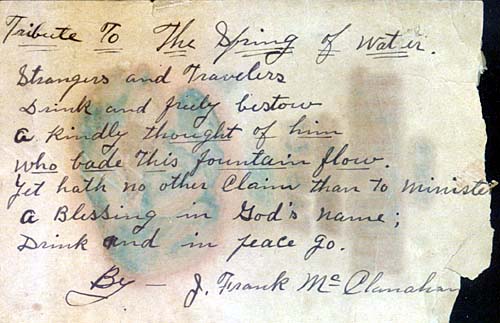 Tribute To The Spring of Water.
Strangers and Travelers
Drink and freely bestow
a kindly thought of him
who bade This fountain flow.
Yet hath no other Claim than To Minister
a Blessing in God's name;
Drink and in peace go.
By — J. Frank McClanahan